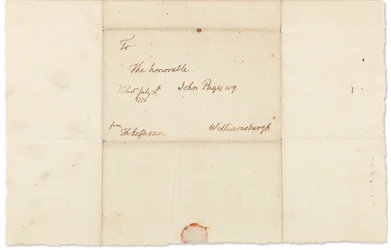 To
The honorable
John Page esq.
July
1776
from
Th: Jefferson
Williamsburgh